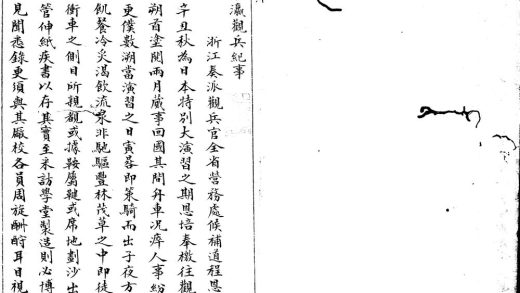 瀛觀兵紀事
浙江奏派觀兵官全省營務處候補道程恩
辛丑秋為日本特別大演習之期恩培奉檄往觀
朔首塗閱兩月蕆事回國其間舟車況瘁人事紛
更僕數溯當演習之日寅昬即策騎而出子夜方
飢餐冷炙渴飲流泉非馳驅豐林茂草之中即徒
衝車之側目所親覩或據鞍屬鞬或席地劃沙出
管伸紙疾書以存其實至采訪學堂製造則必博
見聞悉錄更須與其廠校各員周旋酬酢耳目視